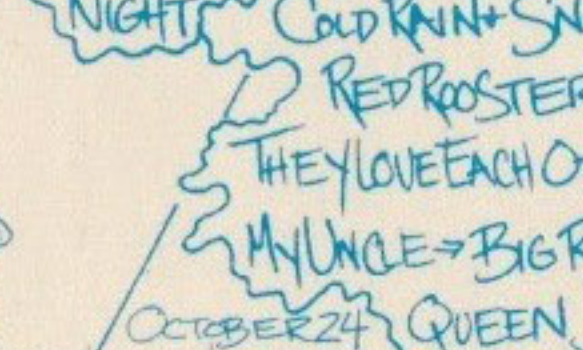 NIGHT
COLD RAIN + SN
RED ROOSTER
THEY LOVE EACH O
MY UNCLE → BIG R
OCTOBER 24
QUEEN